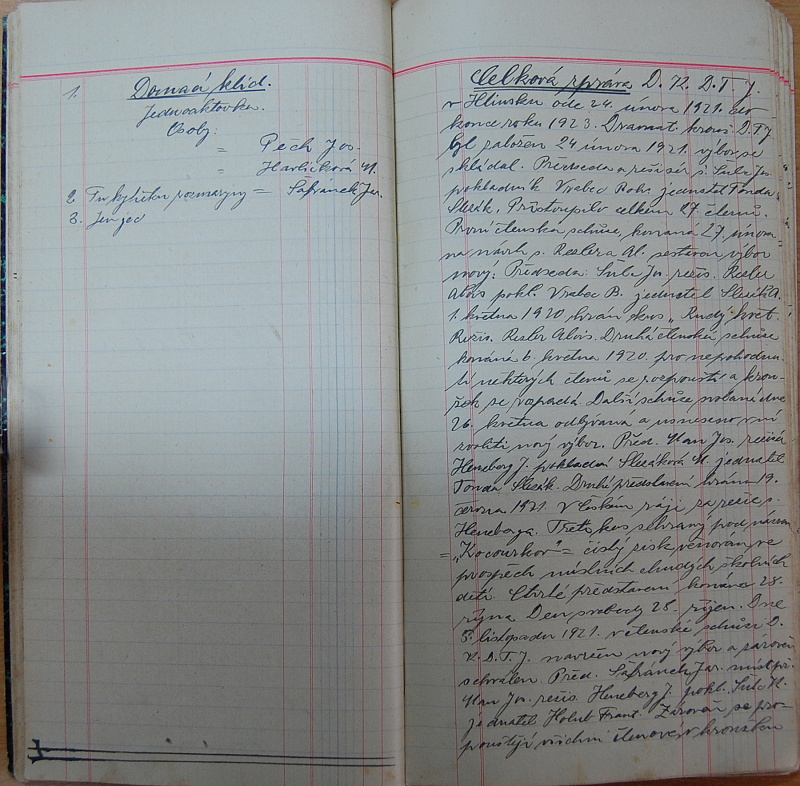 1. Domácí klid.
Jednoaktovka.
Osoby:
= Pech Jos.
= Havlíčková M.
2. Fr. kytička rozmaryny = Šafránek Jar.
3.
Celková zpráva D. K. D. T. J.
v Hlinsku ode 24. února 1921. do
konce roku 1923. Dramat. krouž. D.T.J
byl založen 24 února 1921. výbor se
skládal. Předseda a režisér s. Šula Jos.
pokladník Vrabec Boh. jednatel Tonda
Slezák. Přistoupilo celkem 27 členů.
První členská schůze, konaná 27. února
na návrh s. Resler a Al. sestaven výbor
nový. Předseda. Šula Jos. režis. Resler
Alois pokl. Vrabec B. jednatel Slezák A.
1. května 1920 hrán kus „Rudý květ.
Režis. Resler Alois. Druhá členská schůze
konáná 6. května 1920. pro nepohodu
tí některých členů se rozpouští a krou-
žek se rozpadá. Další schůze svolaná dne
26. května odbývaná a usneseno v ní
zvoliti nový výbor. Před. Man Jos. režisér
Heneberg J. pokladní Slezáková M. jednatel
Tonda Slezák. Druhé představení hráno 19.
června 1921. V českém ráji za režie s.
Heneberga. Třetí kus sehraný pod názvem
= „Kocourkov" = čistý zisk věnován ve
prospěch místních chudých školních
dětí. Čtvrté představení konáno 28.
října Den svobody 28. říjen. Dne
8. listopadu 1921. v členské schůzi D.
K. D. T. J. navržen nový výbor a zároveň
schválen. Před. Šafránek Jar. místpř.
Man Jos. režis. Heneberg J. pokl. Šulc M.
jednatel Holub Frant. Zároveň se pro-
pouštějí všichni členové v kroužku